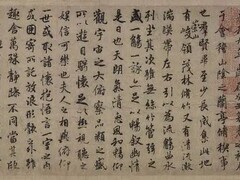 于會稽山陰之蘭亭脩稧事
也羣賢畢至少長咸集此地
有峻領茂林脩竹又有清流激
湍暎帶左右引以為流觴曲水
列坐其次雖無絲竹管弦之
盛一觴一詠亦足以暢敘幽情
是日也天朗氣清惠風和暢仰
觀宇宙之大俯察品類之盛
所以遊目騁懷足以極視聽之
娛信可樂也夫人之相與俯仰
一世或取諸懷抱悟言一室之內
或因寄所託放浪形骸之外雖
趣舍萬殊靜躁不同當其欣